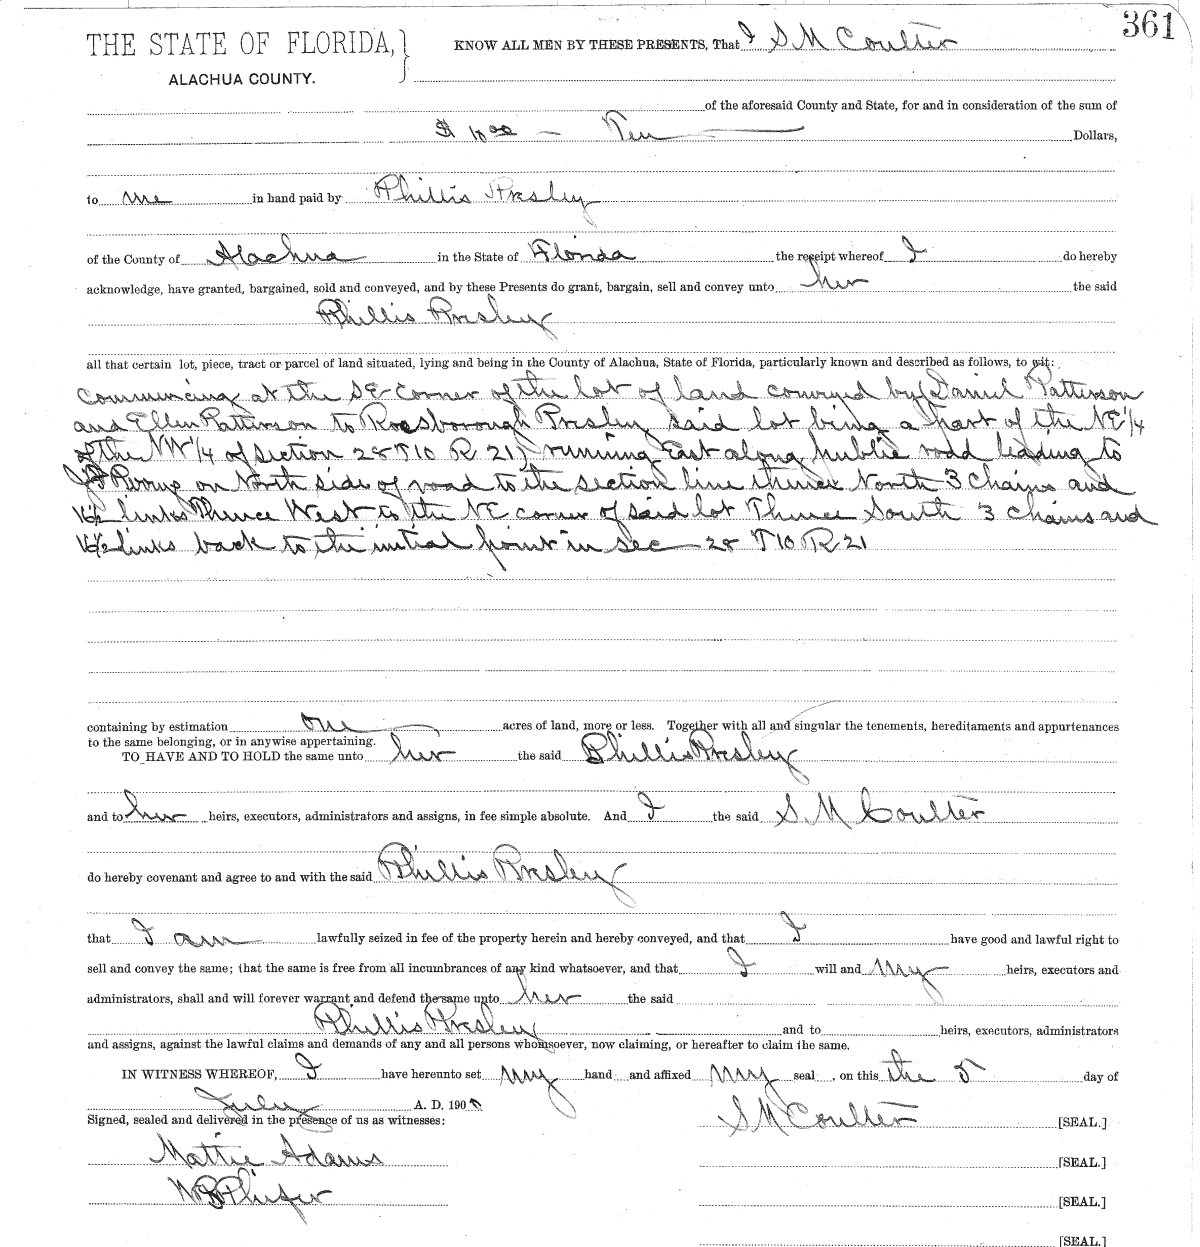 361
THE STATE OF FLORIDA,
ALACHUA COUNTY.
KNOW ALL MEN BY THESE PRESENTS, That I S M Coulter
of the aforesaid County and State, for and in consideration of the sum of
$ 10 00 — Ten Dollars,
to me in hand paid by Phillis Presley
of the County of Alachua in the State of Florida the receipt whereof I do hereby
acknowledge, have granted, bargained, sold and conveyed, and by these Presents do grant, bargain, sell and convey unto her the said
Phillis Presley
all that certain lot, piece, tract or parcel of land situated, lying and being in the County of Alachua, State of Florida, particularly known and described as follows, to wit:
Commencing at the SE corner of the lot of land conveyed by Daniel Patterson
and Ellen Patterson to Rosborough Presley said lot being a part of the NE 1/4
of the NW 1/4 of section 28 T10 R 21, running East along public road leading to
on North side of road to the section line thence North 3 chains and
16½ links Thence West to the NE corner of said lot Thence South 3 chains and
16½ links back to the initial point in sec 28 T10 R 21
containing by estimation one acres of land, more or less. Together with all and singular the tenements, hereditaments and appurtenances
to the same belonging, or in anywise appertaining.
TO HAVE AND TO HOLD the same unto her the said Phillis Presley
and to her heirs, executors, administrators and assigns, in fee simple absolute. And I the said S. M Coulter
do hereby covenant and agree to and with the said Phillis Presley
that I am lawfully seized in fee of the property herein and hereby conveyed, and that I have good and lawful right to
sell and convey the same; that the same is free from all incumbrances of any kind whatsoever, and that I will and my heirs, executors and
administrators, shall and will forever warrant and defend the same unto her the said
Phillis Presley and to heirs, executors, administrators
and assigns, against the lawful claims and demands of any and all persons whomsoever, now claiming, or hereafter to claim the same.
IN WITNESS WHEREOF, I have hereunto set my hand and affixed my seal , on this the 5 day of
July A. D. 190
Signed, sealed and delivered in the presence of us as witnesses:
S M Coulter [SEAL.]
Mattie Adams [SEAL.]
Phifer [SEAL.]
[SEAL.]